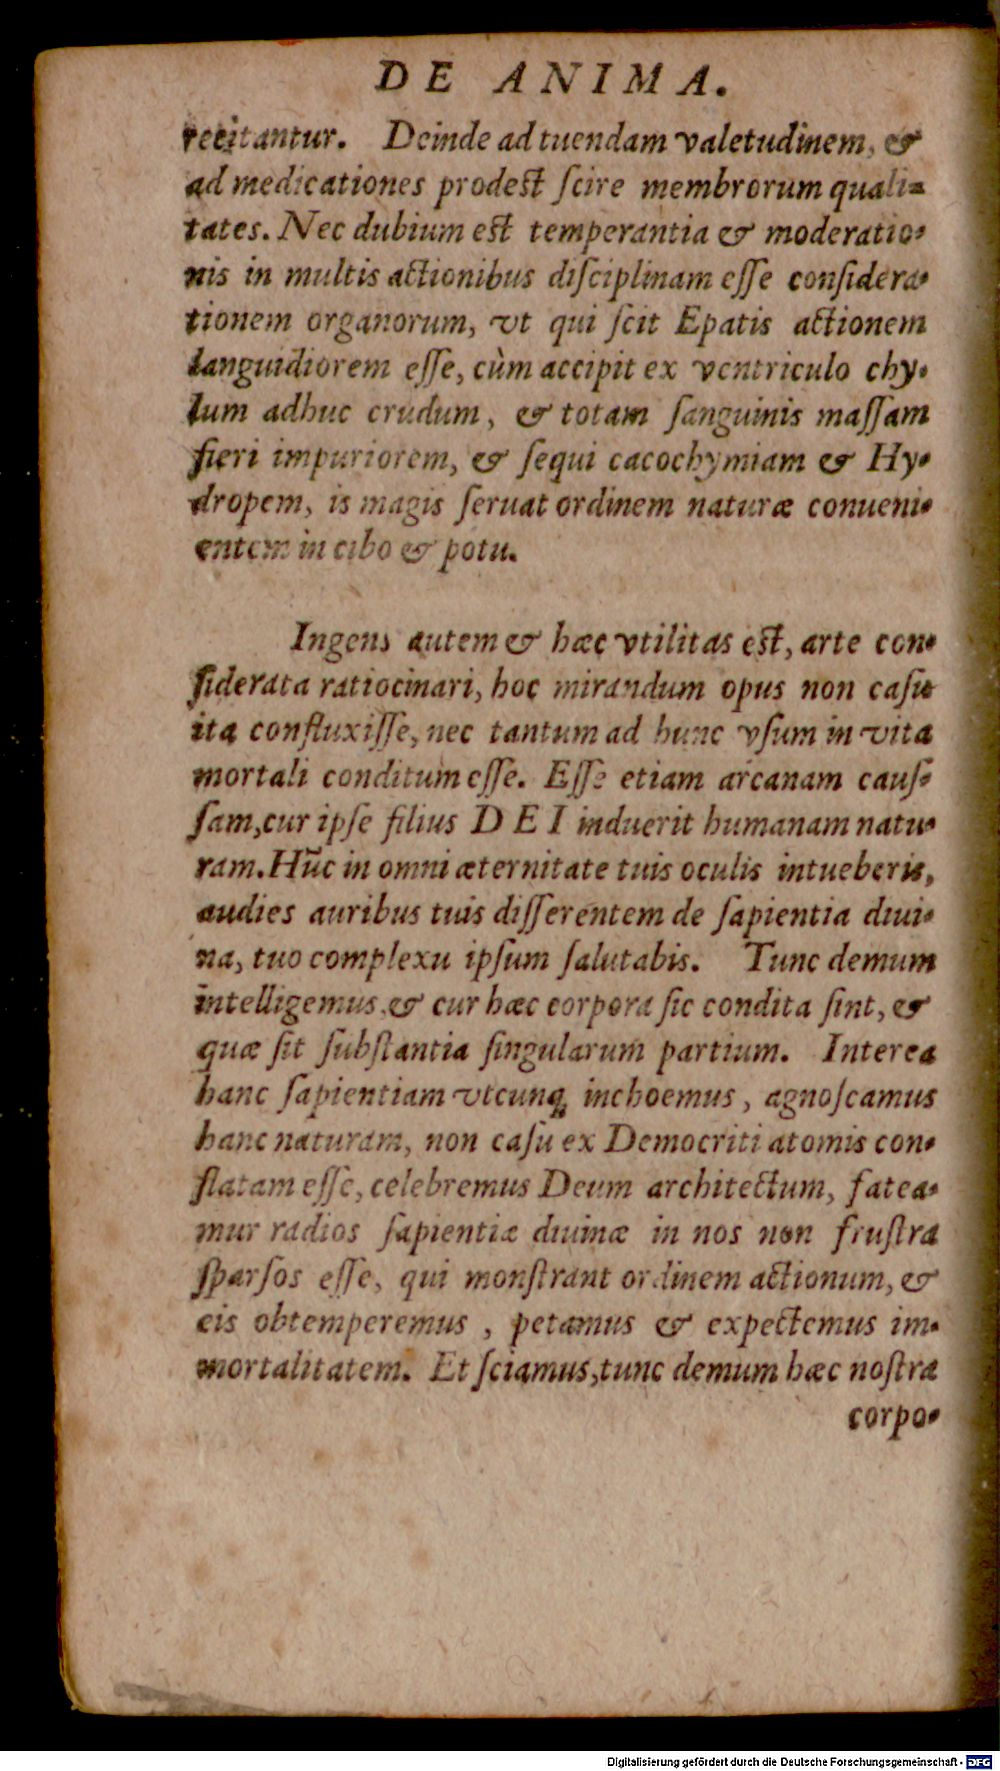 DE ANIMA.
recitantur. Deinde ad tuendam valetudinem, &
ad medicationes prodest ſcire membrorum quali-
tates. Nec dubium est temperantiæ & moderatio-
nis in multis actionibus diſciplinam eſſe conſidera-
tionem organorum, vt qui ſcit Epatis actionem
languidiorem eſſe, cùm accipit ex ventriculo chy-
lum adhuc crudum, & totam ſanguinis maſſam
fieri impuriorem, & ſequi cacochymiam & Hy-
dropem, is magis ſeruat ordinem naturæ conueni-
entem in cibo & potu.
Ingens autem & hæc vtilitas est, arte con-
ſiderata ratiocinari, hoc mirandum opus non caſu
ita confluxiſſe, nec tantum ad hunc vſum in vita
mortali conditum eſſe. Eſſe etiam arcanam cauſ-
ſam, cur ipſe filius DEI induerit humanam natu-
ram. Hūc in omni æternitate tuis oculis intueberis,
audies auribus tuis diſſerentem de ſapientia diui-
na, tuo complexu ipſum ſalutabis. Tunc demum
intelligemus, & cur hæc corpora ſic condita ſint, &
quæ ſit ſubſtantia ſingularum partium. Interea
hanc ſapientiam vtcunq; inchoemus, agnoſcamus
hanc naturam, non caſu ex Democriti atomis con-
flatam eſſe, celebremus Deum architectum, fatea-
mur radios ſapientiæ diuinæ in nos non fruſtra
ſparſos eſſe, qui monſtrant ordinem actionum, &
eis obtemperemus, petamus & expectemus im-
mortalitatem. Et ſciamus, tunc demum hæc noſtra
corpo-
Digitalisierung gefördert durch die Deutsche Forschungsgemeinschaft - DFG